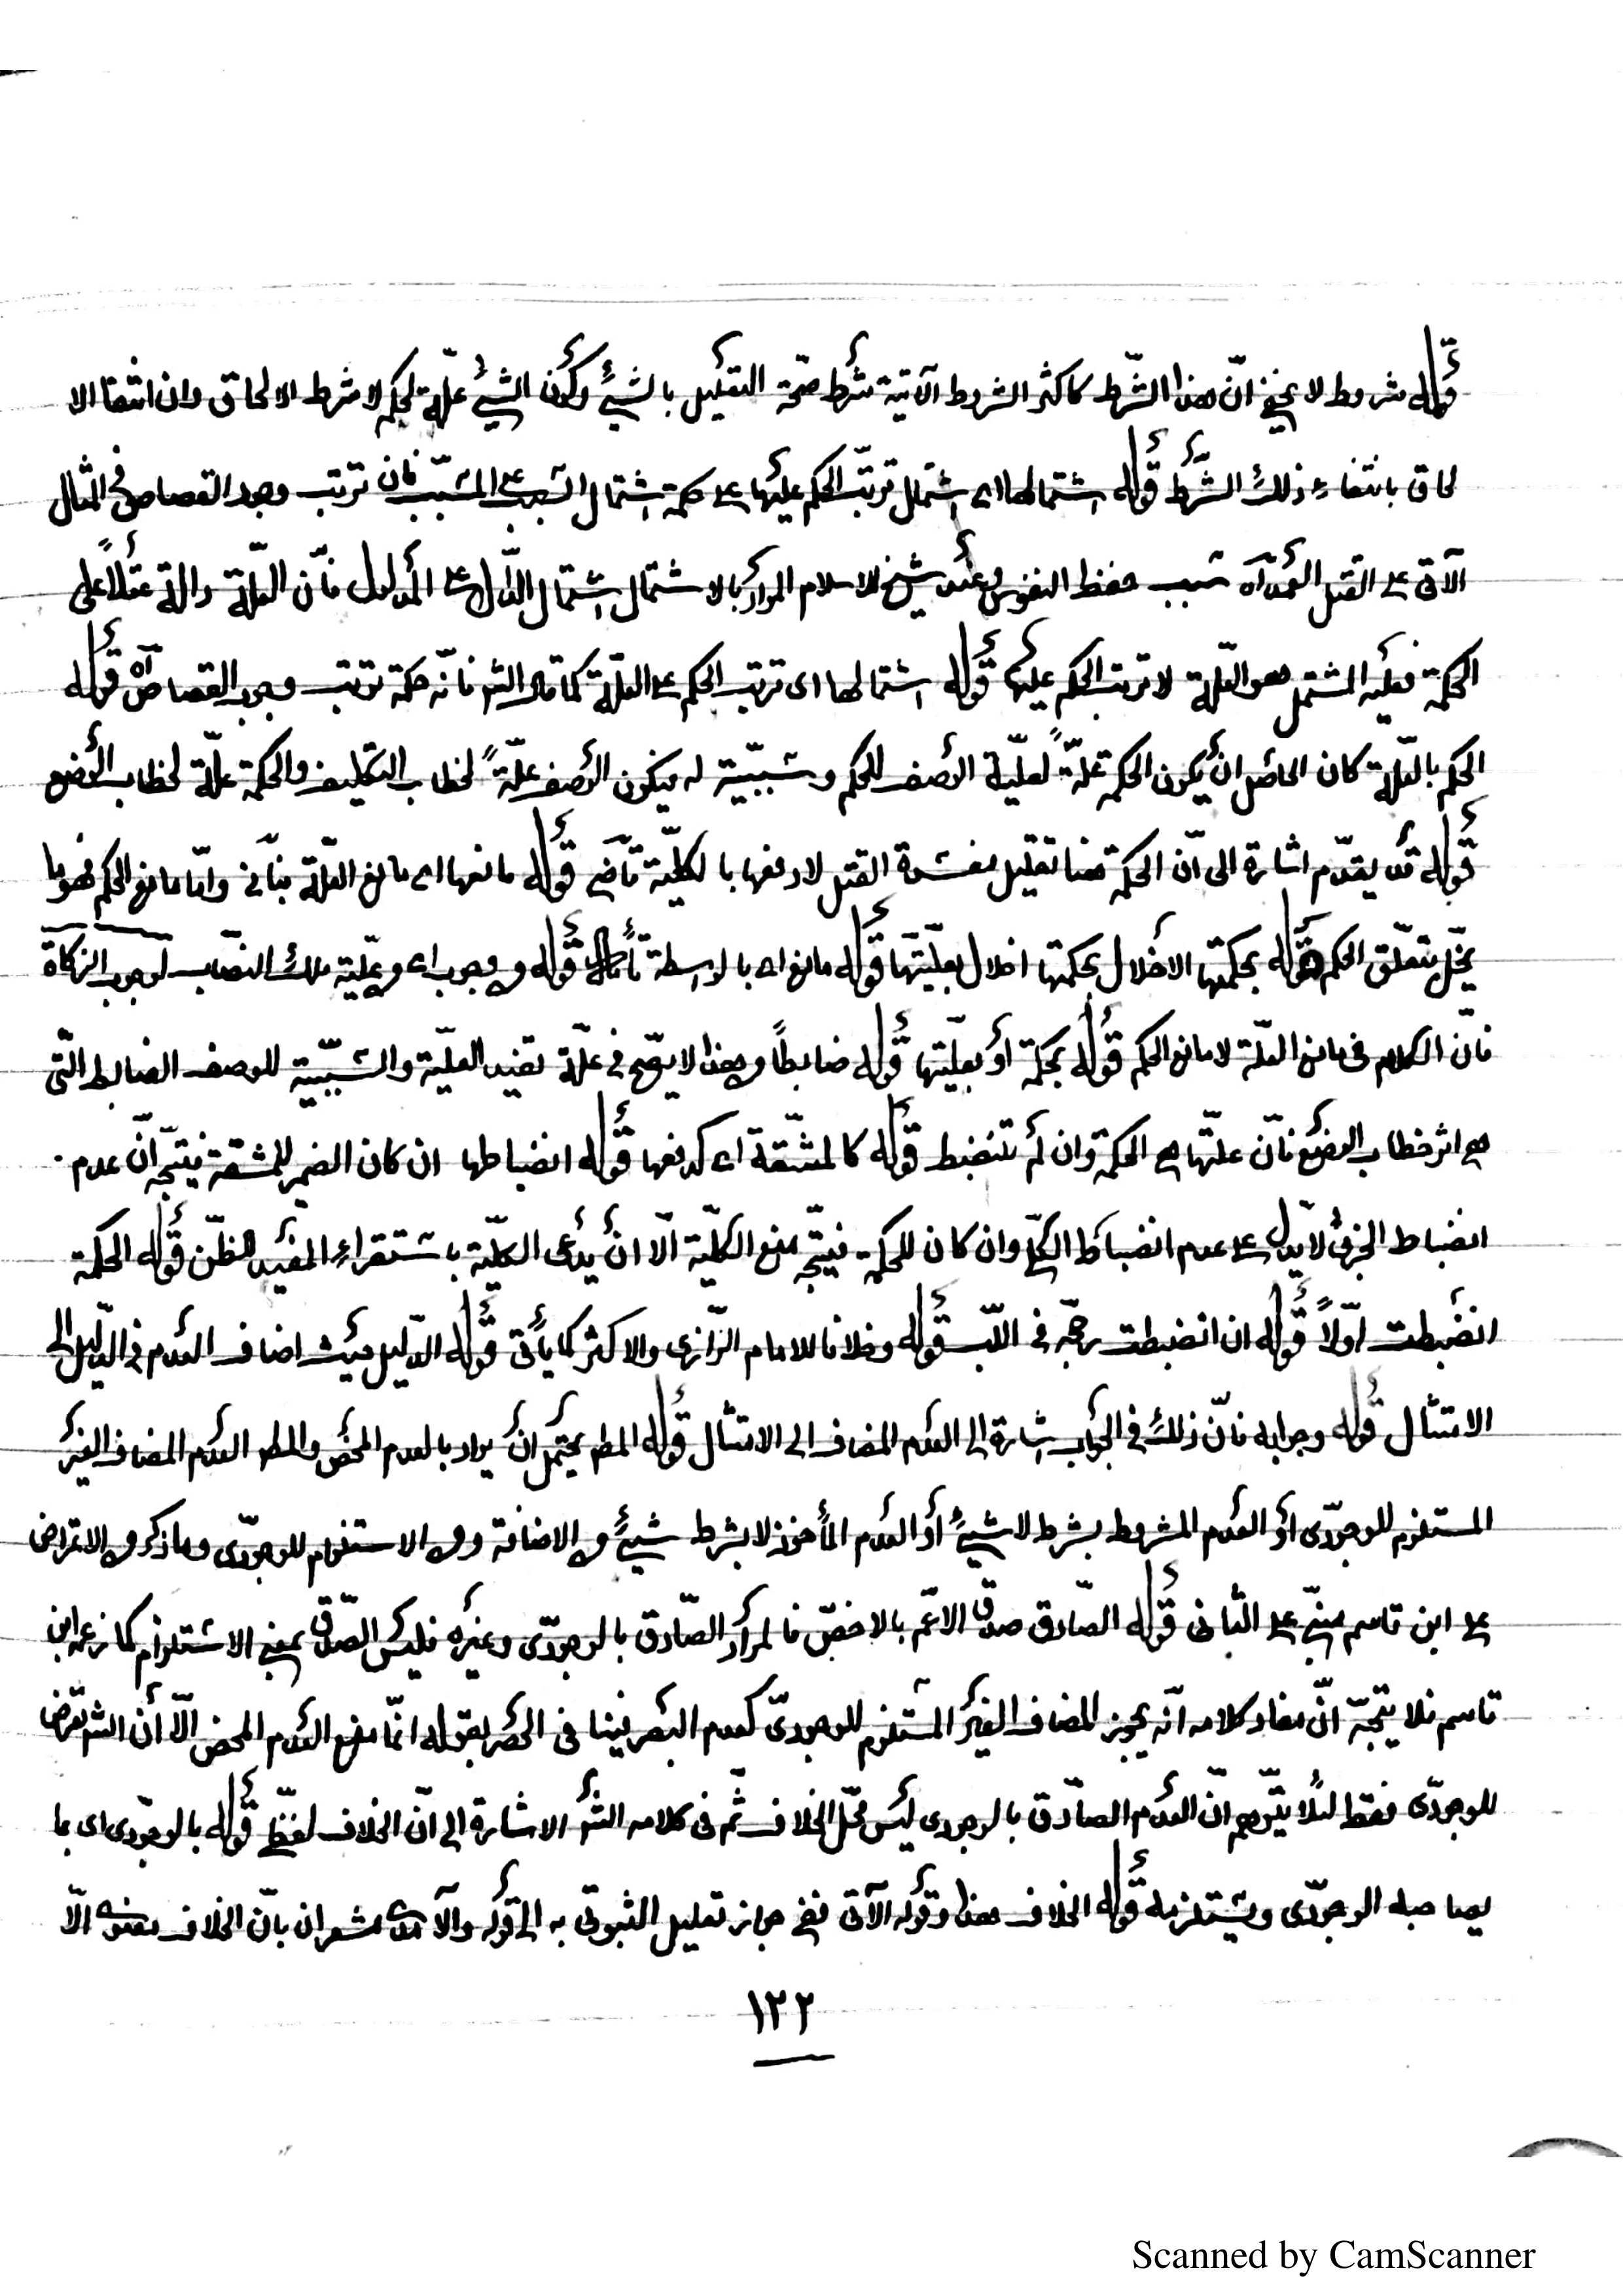 قوله شروط لا يخفى انّ هذا الشّرط كاكثر الشروط الآتية شرط صحّة التعليل بالشيئ وكون الشيئ علّة لحكم لا شرط الالحاق وان انتفا الا
لحاق بانتفاء ذلك الشّرط قوله اشتمالها اى اشتمال ترتّب الحكم عليها على حكمة اشتمال السّبب على المسبّب فان ترتب وجوب القصاص فى المثال
الآتى على القتل العمد آه سبب حفظ النفوس وعند شيخ الاسلام المراد بالاشتمال اشتمال الدّالّ على المدلول فانّ العلّة دالّة عقلاً على
الحكمة فعليه المشتمل هو العلّة لا ترتب الحكم عليها قوله اشتمالها اى ترتب الحكم على العلّة كما قال الشر فانّه حكمة ترتب وجوب القصاص آه قوله
الحكم بالعلّة كان الحاصل ان يكون الحكمة علّةً لعليّة الوصف للحكم وسببيّته له فيكون الوصف علّةً لخطاب التكليف والحكمة علّة لخطاب الوضع
قوله قد يقدّم اشارة الى انّ الحكمة هنا تقليل مفسدة القتل لا دفعها بالكلّيّة قوله مانعها اى مانع العلّة وامّا مانع الحكم فهو ما
يخلّ بتعلّق الحكم قوله بحكمتها الاخلال بحكمتها اخلال بعلّيّتها قوله مانع اى بالواسطة تأمّل قوله وجوب اى علّية ملك النصاب لوجوب الزكاة
فانّ الكلام فى مانع العلّة لا مانع الحكم قوله بحكمة أو بعلّيتها قوله ضابطاً وهذا لا يصحّ فى علّة تفيد العليّة والسّببيّة للوصف الضابط الّتى
هى اثر خطاب الوضع فانّ علّتها هى الحكمة وان لم تنضبط قوله كالمشقّة اى كدفعها قوله انضباطها ان كان الضمير للمشقة فيتّجه انّ عدم
انضباط الجزئى لا يدل على عدم انضباط الكلّ وان كان للحكمة فيتّجه منع الكلّية الّا ان يدعى الكلّية باستقراء المفيد للظّن قوله الحكمة
انضبطت اوّلاً قوله ان انضبطت رجّحه فى اللّب قوله وخلافا للامام الرّازى والاكثر كما يأتى قوله الدّليل حيث اضاف العدم فى الدّليل الى
الامتثال قوله وجوابه فانّ ذلك فى الجواب اشارة الى العدم المضاف الى الامتثال قوله المط يحتمل ان يراد بالعدم المحض والمط العدم المضاف الغير
المستلزم للوجودّى او العدم المشروط بشرط لا شيئ أو العدم المأخوذ لا بشرط شيئ فى الاضافة وفى الاستلزام للوجودّى وما ذكر فى الاعتراض
على ابن قاسم مبنىّ على الثانى قوله الصّادق صدق الاعّم بالاخصّ فالمراد الصّادق بالوجودّى وغيره فليس الصّدق بمعنى الاستلزام كما زعم ابن
قاسم فلا يتّجه انّ مفاد كلامه انّه يجوز المضاف الغير المستلزم للوجودىّ كعدم البصر فينافى الحصر بقوله انّما منع العدم المحض الّا أن الشر تعرّض
للوجودّى فقط لئلّا يتوّهم انّ العدم الصادق بالوجودى ليس محّل الخلاف ثّم فى كلامه الشر الاشارة الى انّ الخلاف لفظّى قوله بالوجودّى اى بما
يصاحبه الوجودّى ويستلزمه قوله الخلاف هذا وقوله الآتى ففى جواز تعليل الثبوتى به الى قوله والآمدى مشعران بانّ الخلاف معنوى الّا
١٢٢
Scanned by CamScanner